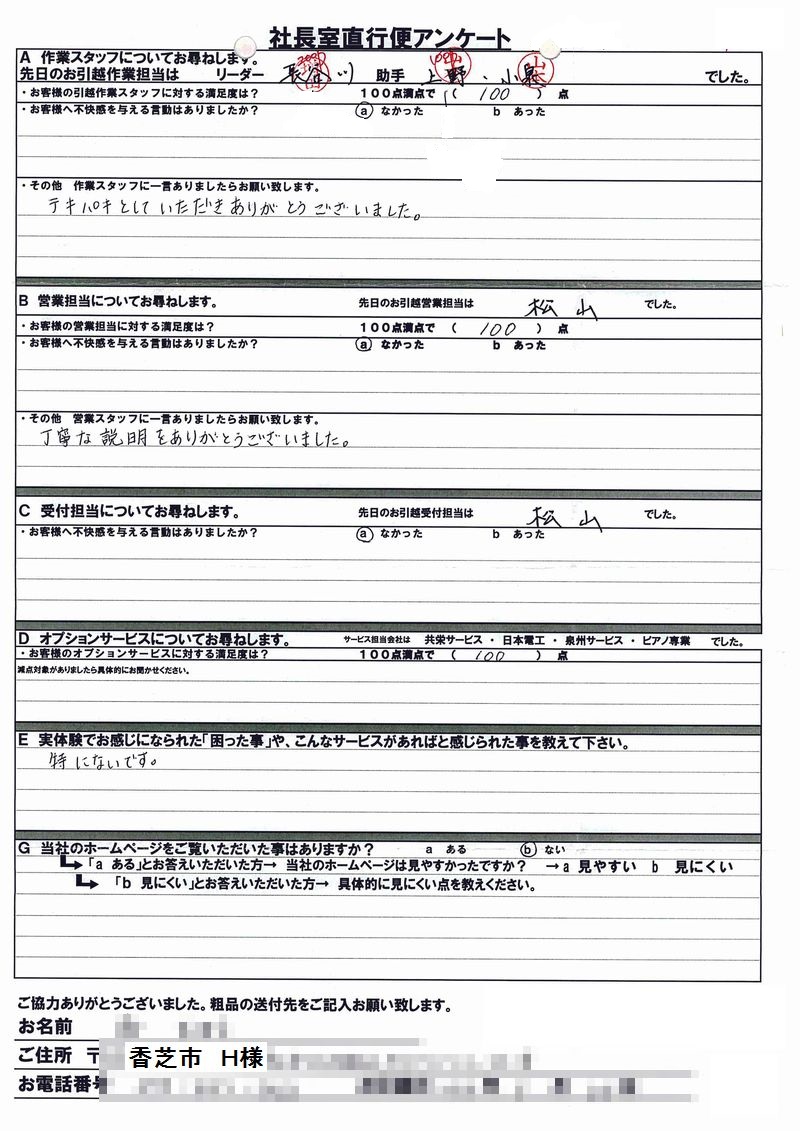 社長室直行便アンケート
A 作業スタッフについてお尋ねします。
先日のお引越作業担当は リーダー 長谷川 助手 上野・小泉 でした。
・お客様の引越作業スタッフに対する満足度は? 100点満点で ( 100 ) 点
・お客様へ不快感を与える言動はありましたか? a なかった b あった
・その他 作業スタッフに一言ありましたらお願い致します。
テキパキとしていただきありがとうございました。
B 営業担当についてお尋ねします。 先日のお引越営業担当は 松山 でした。
・お客様の営業担当に対する満足度は? 100点満点で ( 100 ) 点
・お客様へ不快感を与える言動はありましたか? a なかった b あった
・その他 営業スタッフに一言ありましたらお願い致します。
丁寧な説明をありがとうございました。
C 受付担当についてお尋ねします。 先日のお引越受付担当は 松山 でした。
・お客様へ不快感を与える言動はありましたか? a なかった b あった
D オプションサービスについてお尋ねします。 サービス担当会社は 共栄サービス ・ 日本電工 ・ 泉州サービス ・ ピアノ専業 でした。
・お客様のオプションサービスに対する満足度は? 100点満点で ( 100 ) 点
減点対象がありましたら具体的にお聞かせください。
E 実体験でお感じになられた「困った事」や、こんなサービスがあればと感じられた事を教えて下さい。
特にないです。
G 当社のホームページをご覧いただいた事はありますか? a ある b ない
「a ある」とお答えいただいた方→ 当社のホームページは見やすかったですか? →a 見やすい b 見にくい
「b 見にくい」とお答えいただいた方→ 具体的に見にくい点を教えください。
ご協力ありがとうございました。粗品の送付先をご記入お願い致します。
お名前
ご住所 〒 香芝市 H様
お電話番号